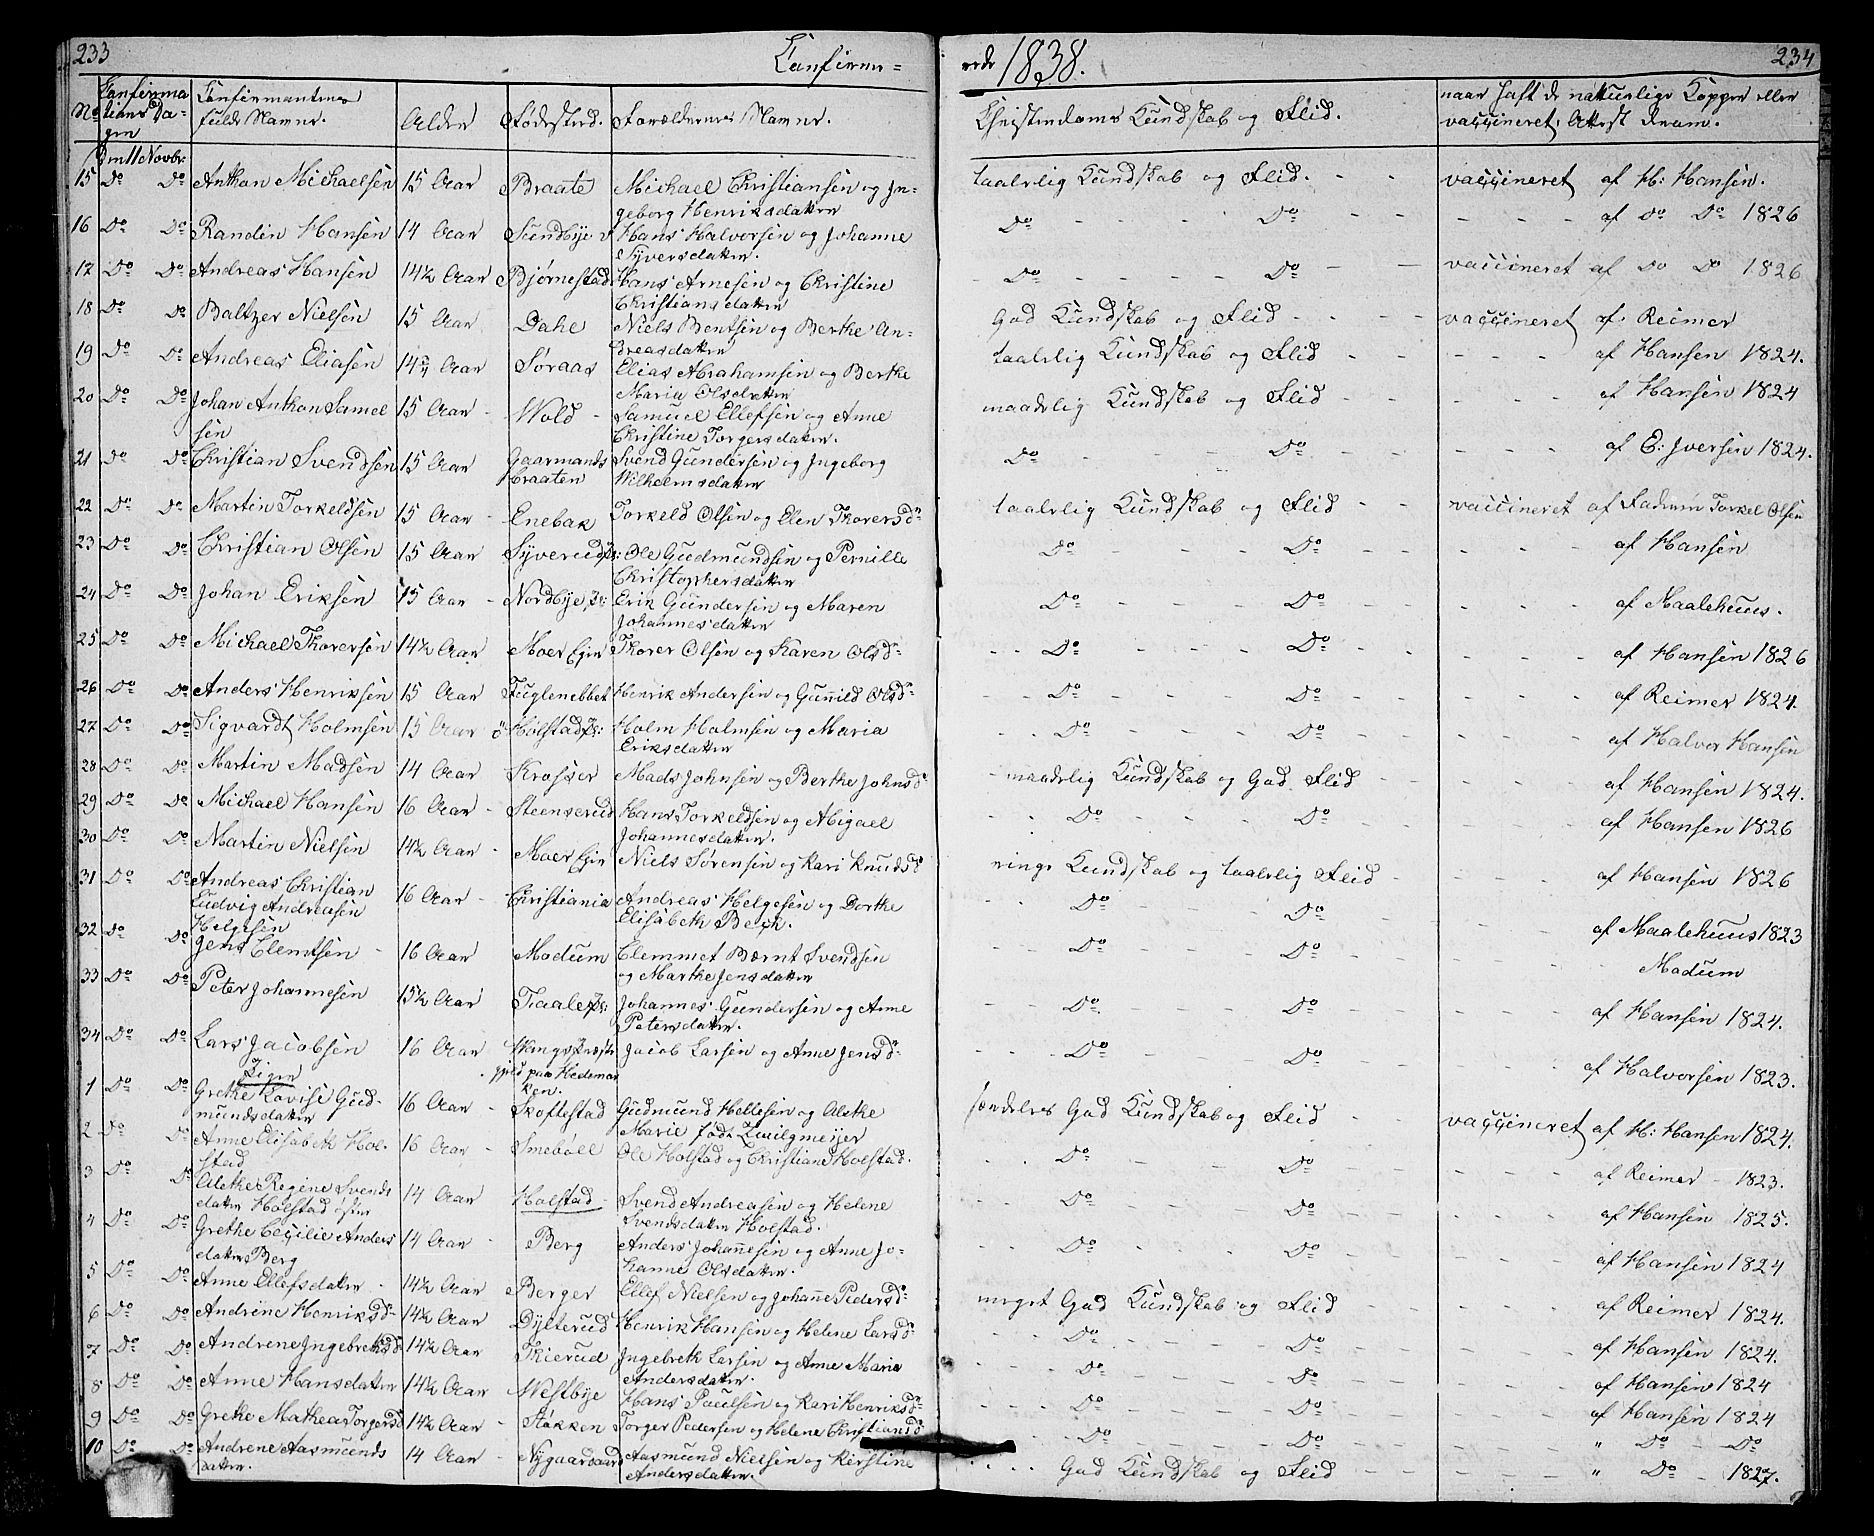 233 Confirme-
rede 1838. 234
No Confirmationsdagen Confirmanternes fulde Navne. Alder Fødested. Forældrenes Navne. Christendoms Kundskab og Flid. naar haft de naturlige Kopper eller vaccineret, Attest derom.
Den 11 Novbr
15 Do Do Anthon Michaelsen 15 Aar Braate Michael Christiansen og In- taalelig Kundskab og Flid. - - vaccineret af H: Hansen.
geborg Henriksdatter
16 Do Do Randin Hansen 14 Aar Sundbye v Hans Halvorsen og Johanne Do Do af Do Do 1826
Syversdatter.
17 Do Do Andreas Hansen 14½ Aar Bjørnestad Hans Arnesen og Christine Do Do vaccineret af Do Do 1826
Christiansdatter
18 Do Do Baltzer Nielsen 15 Aar Dahe Niels Bentsen og Berthe An- God Kundskab og Flid vaccineret af Reimer
dreasdatter
19 Do Do Andreas Eliasen 14¾ Aar Søraas Elias Abrahamsen og Berthe taalelig Kundskab og Flid af Hansen 1824.
Maria Olsdatter
20 Do Do Johan Anthon Samel 15 Aar Wold Samuel Ellefsen og Anne maadelig Kundskab og Flid af Hansen 1824
sen Christine Torgersdatter.
21 Do Do Christian Svendsen 15 Aar Gaarmands Svend Gundersen og Ingeborg Do Do af E: Iversen 1824.
braaten Wilhelmsdatter
22 Do Do Martin Torkeldsen 15 Aar Enebak Torkeld Olsen og Elen Thoversd: taalelig Kundskab og Flid vaccineret af Faderen Torkel Olsen
23 Do Do Christian Olsen 15 Aar Syverud Ole Gudmundsen og Pernille Do Do af Hansen
Christophersdatter
24 Do Do Johan Eriksen 15 Aar Nordbye, Erik Gundersen og Maren Do Do af Maalehuus.
Johannesdatter
25 Do Do Michael Thoversen 14½ Aar Moer Eger Thorer Olsen og Karen Olsd: Do Do af Hansen 1826
26 Do Do Anders Henriksen 15 Aar Fuglenebbet Henrik Andersen og Gunild Olsd: Do Do af Reimer 1824.
27 Do Do Sigvardt Holmsen 15 Aar ö Holstad Holm Holmsen og Maria Do Do af Halvor Hansen
Eriksdatter
28 Do Do Martin Madsen 14 Aar Krosser Mads Johnsen og Berthe Johnsd: maadelig Kundskab og God Flid af Hansen 1824.
29 Do Do Michael Hansen 16 Aar Steenserud Hans Torkeldsen og Abigael Do Do af Hansen 1826
Johannesdatter.
30 Do Do Martin Nielsen 14½ Aar Moer Eger Niels Sørensen og Kari Knudsd: ringe Kundskab og taalelig Flid af Hansen 1826
31 Do Do Andreas Christian 16 Aar Christiania Andreas Helgesen og Dorthe Do Do af Maalehuus 1823
Ludvig Andreasen Elisabeth Beck.
Helgesen
32 Do Do Jens Clemtsen 16 Aar Modum Clemmet Bærnt Svendsen Do Do Modum
og Marthe Jensdatter
33 Do Do Peter Johannesen 15½ Aar Taale Johannes Gundersen og Anne Do Do af Hansen 1824.
Petersdatter.
34 Do Do Lars Jacobsen 16 Aar Wangs Præste Jacob Larsen og Anne Jensd: Do Do af Halvorsen 1823.
gjeld paa Hedemar
ken.
Piger
1 Do Do Grethe Lovise Gud- 16 Aar Skoftestad Gudmund Hellesen og Alethe særdeles God Kundskab og Flid vaccineret af H: Hansen 1824.
mundsdatter Marie født Zwilgmeijer
2 Do Do Anne Elisabeth Hol- 16 Aar Smebøll Ole Holstad og Christiane Holstad. Do Do af Reimer 1823.
stad
3 Do Do Alethe Regine Svends 14 Aar Holstad Svend Andreasen og Helene Do Do af Hansen 1825.
datter Holstad öster Svendsdatter Holstad.
4 Do Do Grethe Cecilie Anders 14 Aar Berg Anders Johannesen og Anne Jo- Do Do af Hansen 1824
datter Berg hanne Olsdatter.
5 Do Do Anne Ellefsdatter 14½ Aar Berger Ellef Nielsen og Johanne Pedersd: meget God Kundskab og Flid af Reimer 1824.
6 Do Do Andrine Henriksd: 14½ Aar Dylterud Henrik Hansen og Helene Larsd: Do Do af Hansen 1824.
7 Do Do Andrene Ingebrethsd: 14½ Aar Skierud Ingebreth Larsen og Anne Marie Do Do af Hansen 1824
Andersdatter.
8 Do Do Anne Hansdatter 14½ Aar Westbye Hans Poulsen og Kari Henriksd: Do Do af Hansen 1824
9 Do Do Grethe Mathea Torgersd: 14½ Aar Støkken Torger Pedersen og Helene Christiansd: Do Do " Do Do
10 Do Do Andrene Aasmunds 14 Aar Nygaard Aasmund Nielsen og Kirstine God Kundskab og Flid " Do 1827.
datter. Andersdatter.